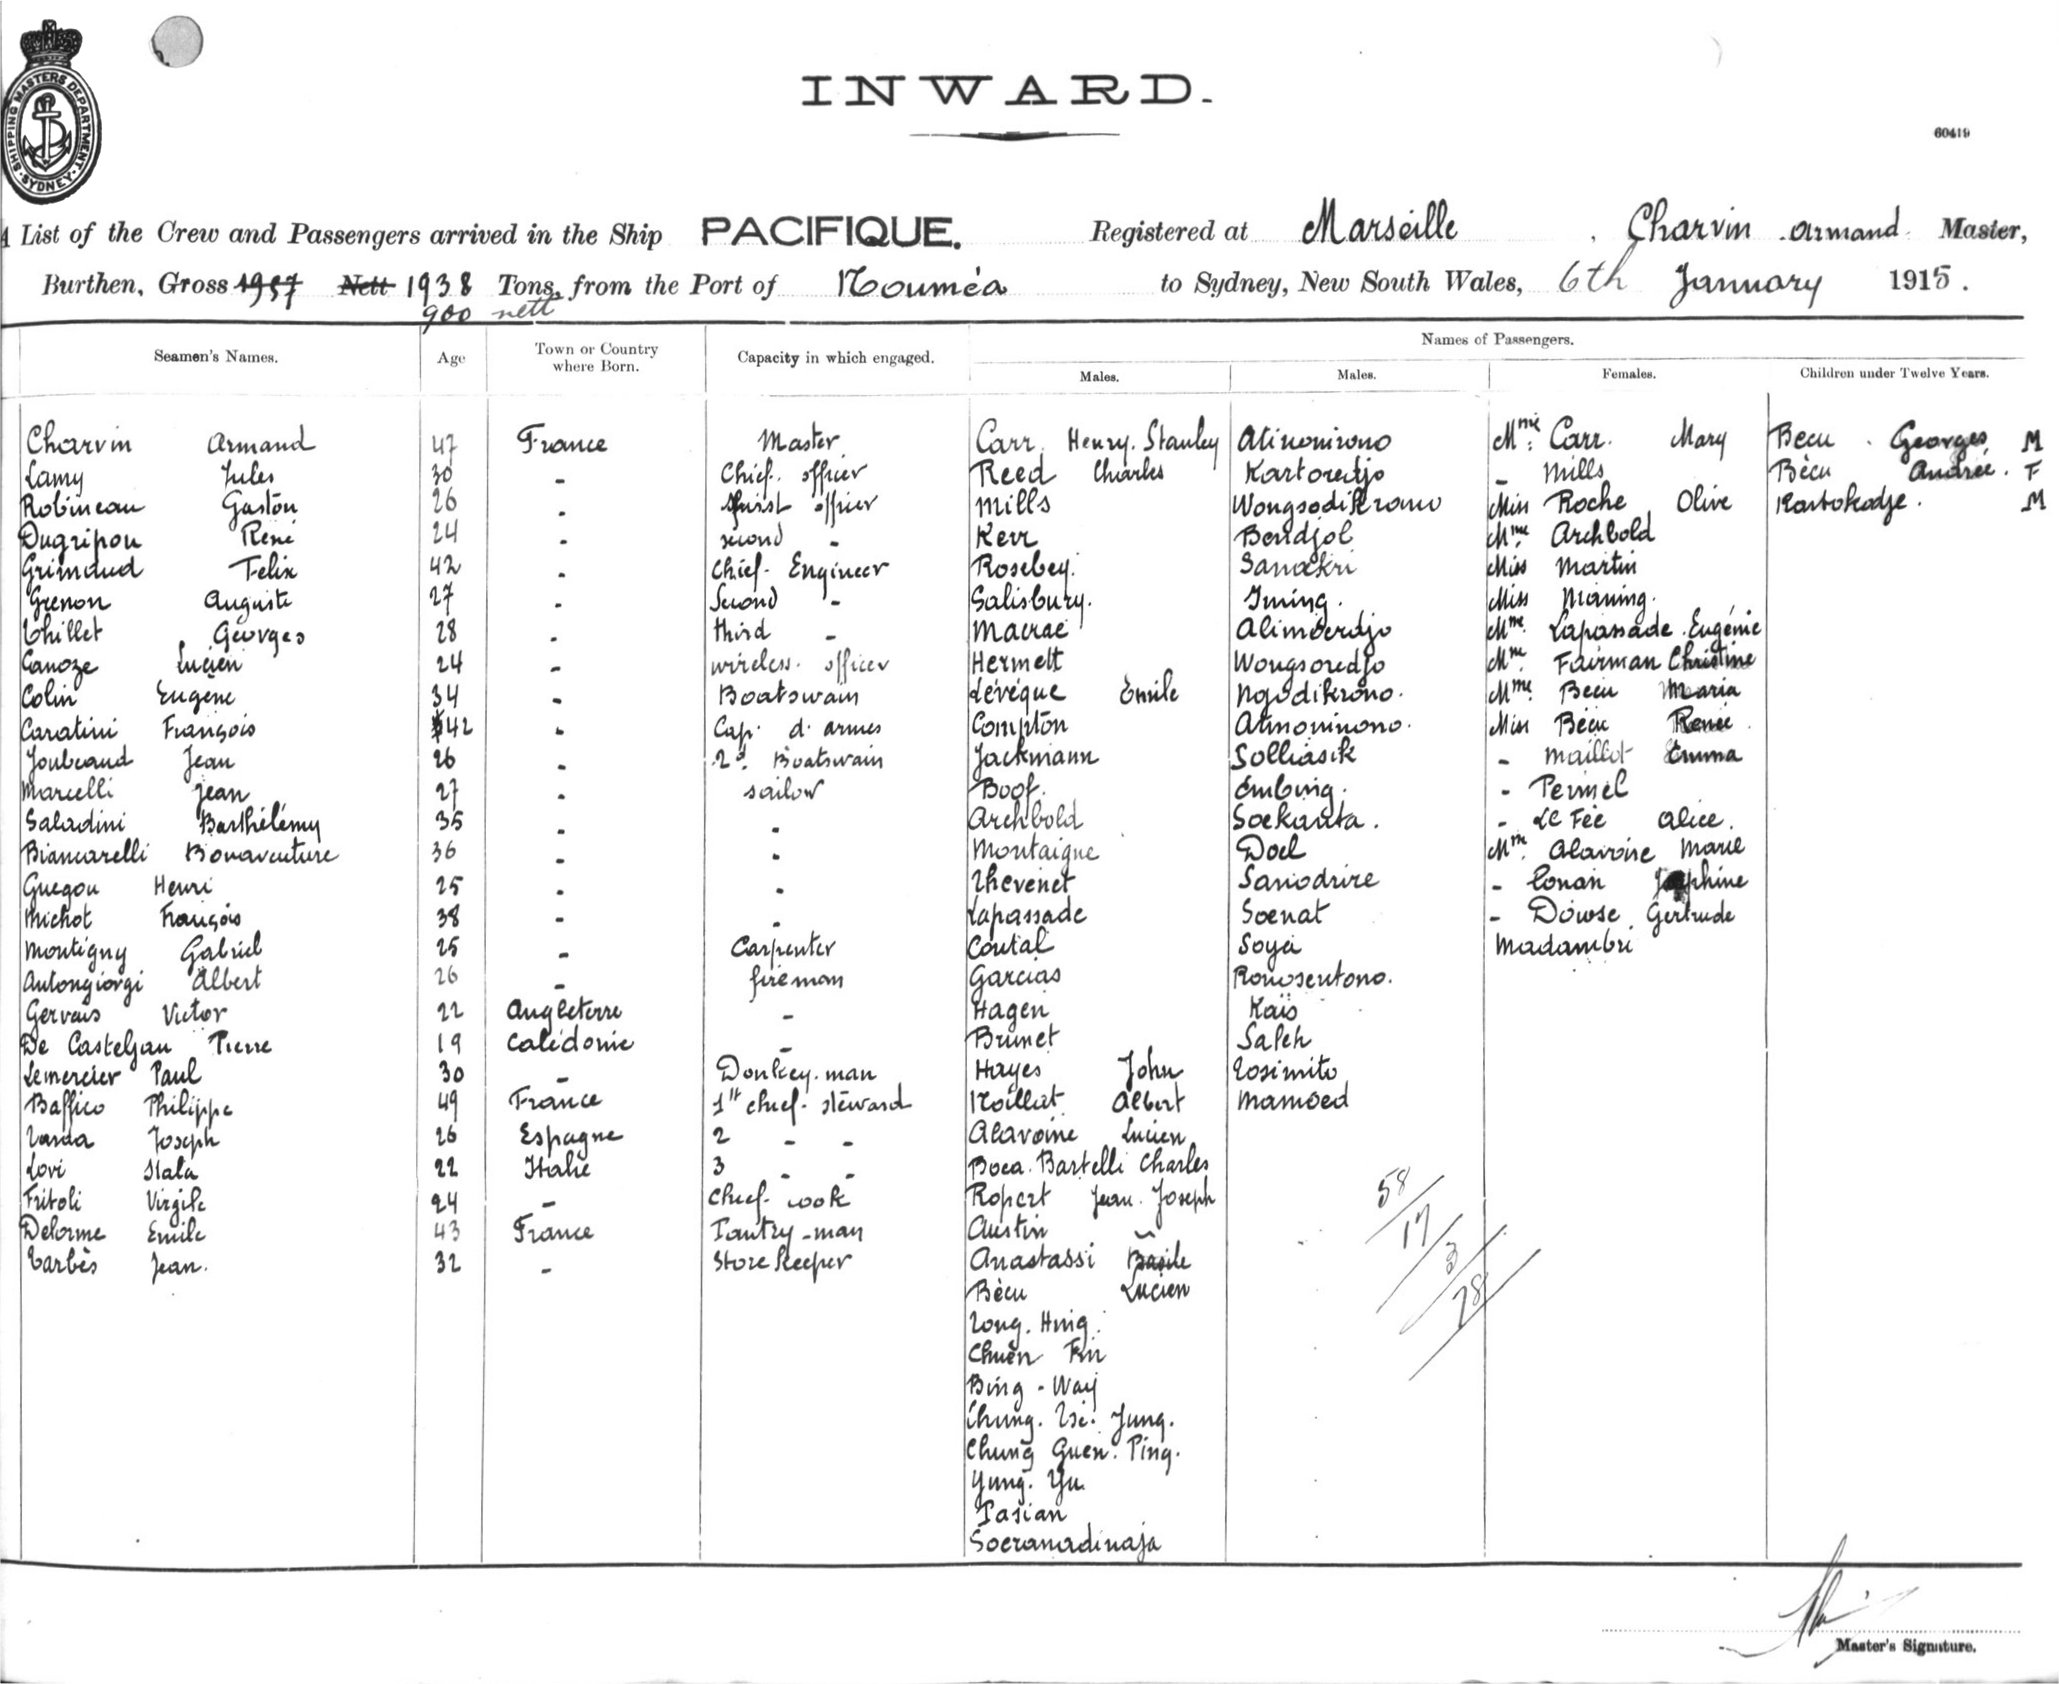 SHIPPING MASTERS DEPARTMENT SYDNEY
INWARD.
60419
A List of the Crew and Passengers arrived in the Ship PACIFIQUE. Registered at Marseille, Charvin Armand Master,
Burthen, Gross 1957 Nett 1938 Tons, from the Port of Nouméa to Sydney, New South Wales, 6th January 1915.
900 nett
Names of Passengers.
Seamen's Names. Age Town or Country where Born. Capacity in which engaged. Males. Males. Females. Children under Twelve Years.
Charvin Armand 47 France Master Carr. Henry. Stanley Atinomirono Mme. Carr. Mary Becu. Georges M
Lamy Jules 30 - Chief. officer Reed Charles Kartoredjo - Mills Bècu Andrée. F
Robineau Gaston 26 - first officer Mills Wongsodikromo Miss Roche Olive Kartokadje. M
Dugripou René 24 - second - Kerr Bendjol Mme. Archbold
Grimaud Felix 42 - Chief. Engineer Rosebey. Sanockri Miss Martin
Grenon Auguste 27 - Second - Salisbury. Iming. Miss Maning.
Thillet Georges 28 - third - Macrae Alimoerdjo Mme. Lapassade. Eugénie
Canoze Lucien 24 - wireless. officer Hermett Wongsoredjo Mme. Fairman Christine
Colin Eugène 34 - Boatswain Lévéque Emile Ngodikrono. Mme. Becu Maria
Caratini François 42 - Cap. d'armes Compton Atmoninono. Miss Bécu Renée
Joubeaud Jean 26 - 2d. Boatswain Jackmann Solliasik - Maillot Emma
Marcelli Jean 27 - sailor Boof. Embing. - Permel
Saladini Barthélémy 35 - - Archbold Soekanta. - Le Fée Alice.
Biancarelli Bonaventure 36 - - Montaigne Doel Mme. Alavoine Marie
Guegou Henri 25 - - Thevenet Sanodrire - Conan Josephine
Michot François 38 - - Lapassade Soenat - Dowse Gertrude
Montigny Gabriel 25 - Carpenter Coutal Soya Madambri
Antongiorgi Albert 26 - fireman Garcias Ronosentono.
Gervais Victor 22 Angleterre - Hagen Kaïs
De Casteljau Pierre 19 Calédonie - Brunet Saleh
Lemercier Paul 30 - Donkey-man Hayes John Tosimito
Baffico Philippe 49 France 1st chief. steward Noillat Albert Mamoed
Varda Joseph 26 Espagne 2 - - Alavoine Lucien
Lovi Itala 22 Italie 3 - - Boca. Bartelli Charles
Fritoli Virgile 24 - Chief. cook Ropert Jean. Joseph
Delorme Emile 43 France Pantry-man Austin -
Tarbès Jean. 32 - Store Keeper Anastassi Basile
Bècu Lucien
Tong. Hing.
Chuen Fui
Bing-Way
Chung. Tse. Jung.
Chung Guen. Ping.
Yung. Yu
Pasian
Soeranadinaja
58/
17/
3/
78/
Master's Signature.